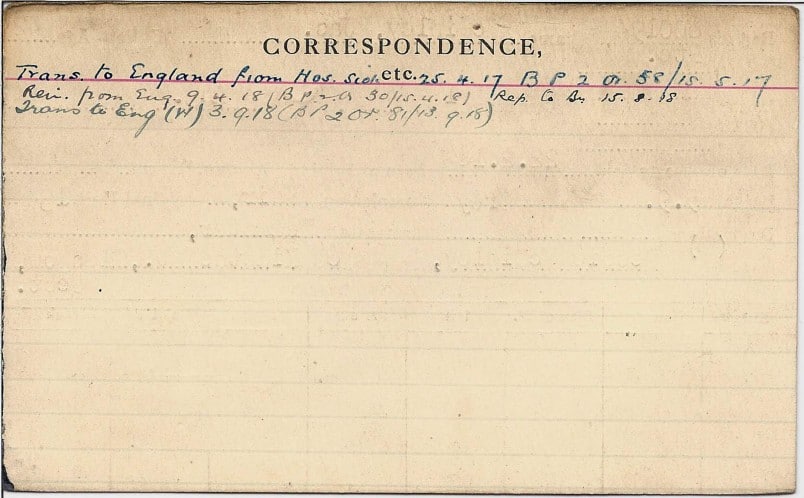 CORRESPONDENCE,
etc.
Trans. to England from Hos. Sick. 25. 4. 17 B P 2 Or. 58/15. 5. 17
Rein. from Eng. 9. 4. 18 (B P 2 Or 30/15.4.18) Rep. to Bn 15. 8. 18
Trans to Eng (W) 3. 9. 18 (B P 2 Or. 81/13. 9. 18)